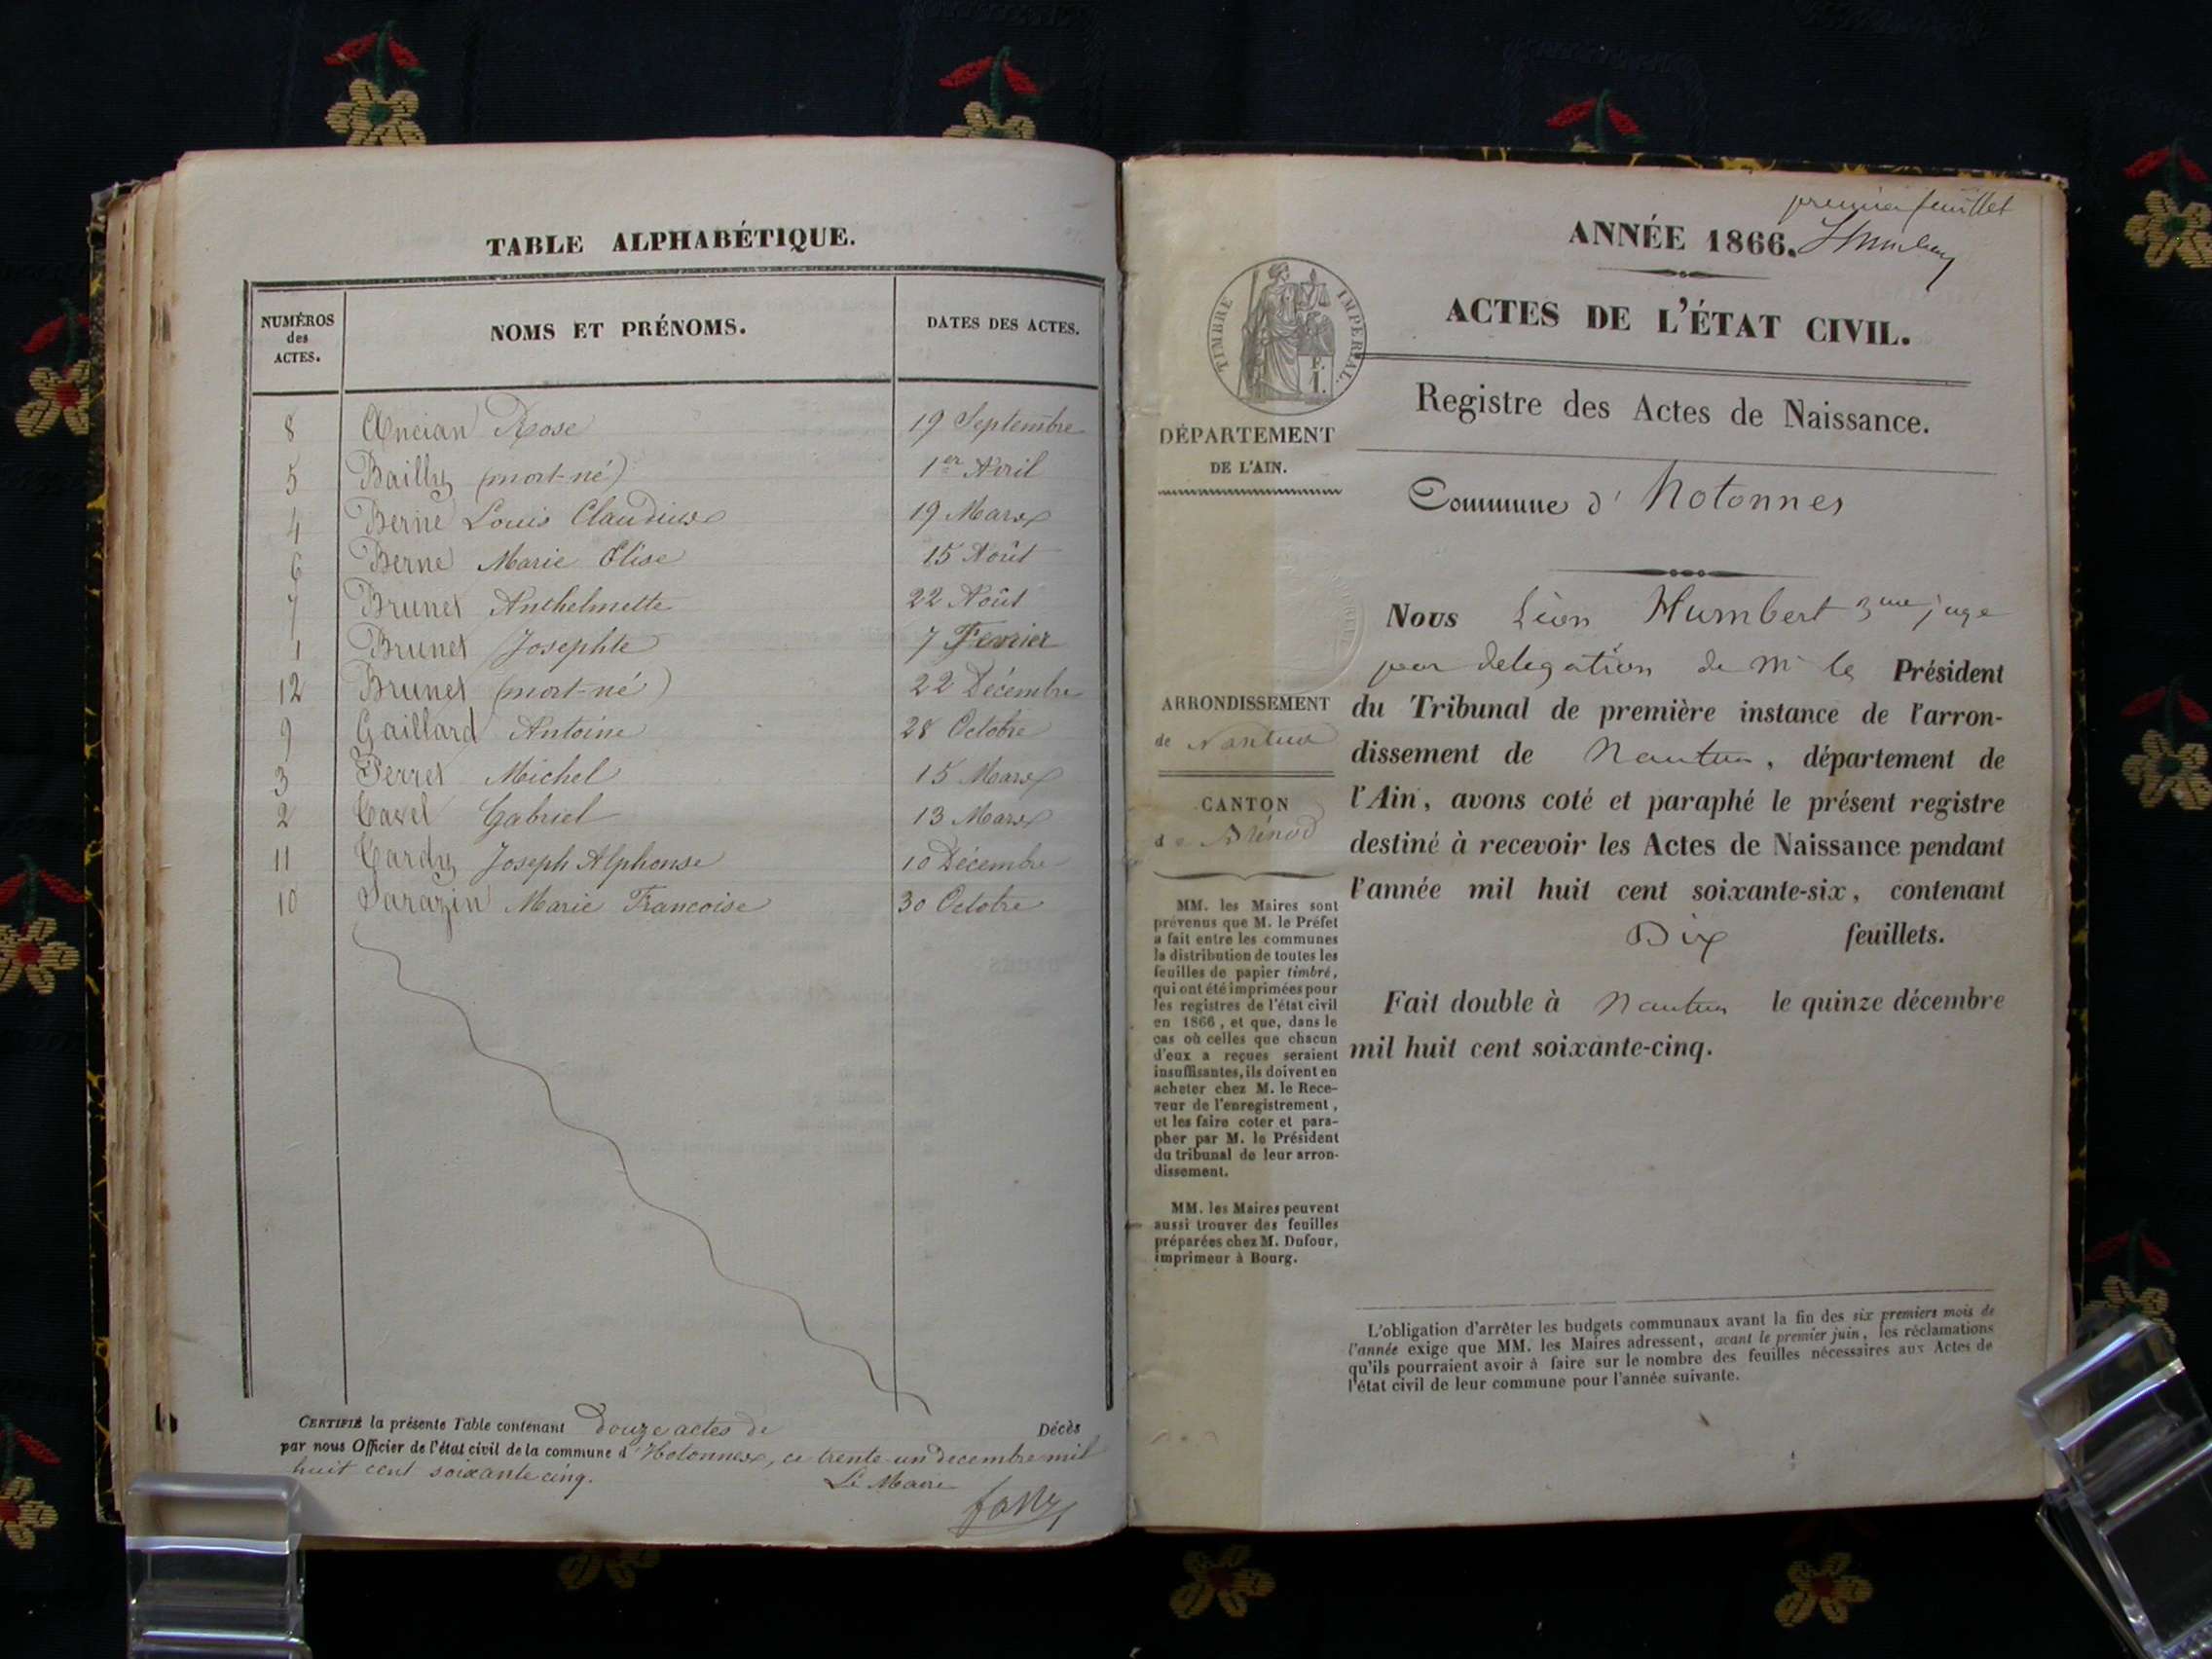 TABLE ALPHABÉTIQUE.
NUMÉROS des ACTES.
NOMS ET PRÉNOMS.
DATES DES ACTES.
8 Ancian Rose 19 Septembre
5 Bailly (mort-né) 1er Avril
4 Berne Louis Claudius 19 Mars
6 Berne Marie Élise 15 Août
7 Brunet Anthelmette 22 Août
1 Brunet Josephte 7 Fevrier
12 Brunet (mort-né) 22 Décembre
9 Gaillard Antoine 28 Octobre
3 Perret Michel 15 Mars
2 Gabriel 13 Mars
11 Tardy Joseph Alphonse 10 Décembre
10 Sarazin Marie Francoise 30 Octobre
CERTIFIÉ la présente Table contenant Douze actes de Décès
par nous Officier de l'état civil de la commune d'Hotonnes, ce trente-un decembre mil
huit cent soixante cinq.
Le Maire
premier feuillet
ANNÉE 1866.
ACTES DE L'ÉTAT CIVIL.
Registre des Actes de Naissance.
Commune d' Hotonnes
TIMBRE IMPÉRIAL.
DÉPARTEMENT
DE L'AIN.
ARRONDISSEMENT
de Nantua
CANTON
de Brénod
MM. les Maires sont
prévenus que M. le Préfet
a fait entre les communes
la distribution de toutes les
feuilles de papier timbré,
qui ont été imprimées pour
les registres de l'état civil
en 1866, et que, dans le
cas où celles que chacun
d'eux a reçues seraient
insuffisantes, ils doivent en
acheter chez M. le Rece-
veur de l'enregistrement,
et les faire coter et para-
pher par M. le Président
du tribunal de leur arron-
dissement.
MM. les Maires peuvent
aussi trouver des feuilles
préparées chez M. Dufour,
imprimeur à Bourg.
Nous Léon Humbert 3me juge
par delegation de Mr le Président
du Tribunal de première instance de l'arron-
dissement de Nantua, département de
l'Ain, avons coté et paraphé le présent registre
destiné à recevoir les Actes de Naissance pendant
l'année mil huit cent soixante-six, contenant
Dix feuillets.
Fait double à Nantua le quinze décembre
mil huit cent soixante-cinq.
L'obligation d'arrêter les budgets communaux avant la fin des six premiers mois de
l'année exige que MM. les Maires adressent, avant le premier juin, les réclamations
qu'ils pourraient avoir à faire sur le nombre des feuilles nécessaires aux Actes de
l'état civil de leur commune pour l'année suivante.